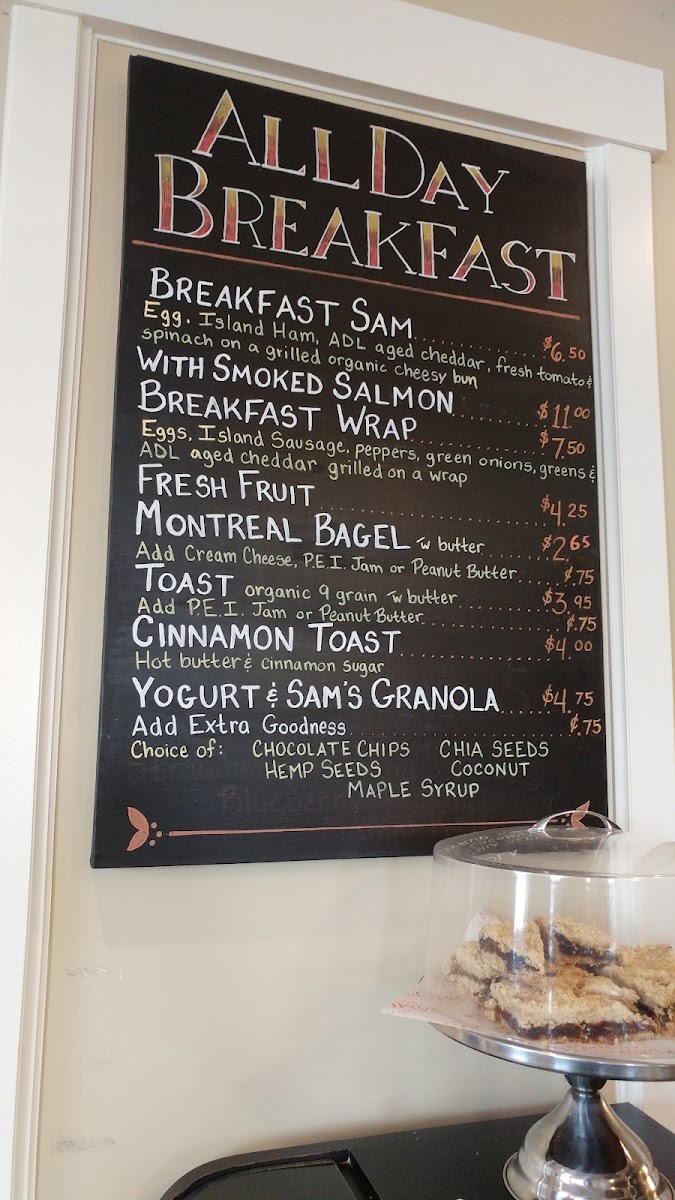 ALL DAY
BREAKFAST
BREAKFAST SAM $6.50
Egg, Island Ham, ADL aged cheddar, fresh tomato &
spinach on a grilled organic cheesy bun
WITH SMOKED SALMON $11.00
BREAKFAST WRAP $7.50
Eggs, Island Sausage, peppers, green onions, greens &
ADL aged cheddar grilled on a wrap
FRESH FRUIT $4.25
MONTREAL BAGEL w butter $2.65
Add Cream Cheese, P.E.I. Jam or Peanut Butter ¢.75
TOAST organic 9 grain w butter $3.95
Add P.E.I. Jam or Peanut Butter ¢.75
CINNAMON TOAST $4.00
Hot butter & cinnamon sugar
YOGURT & SAM'S GRANOLA $4.75
Add Extra Goodness ¢.75
Choice of: CHOCOLATE CHIPS CHIA SEEDS
HEMP SEEDS COCONUT
MAPLE SYRUP